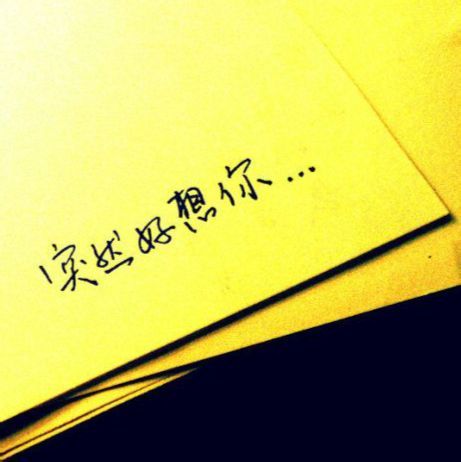 突然好想你...